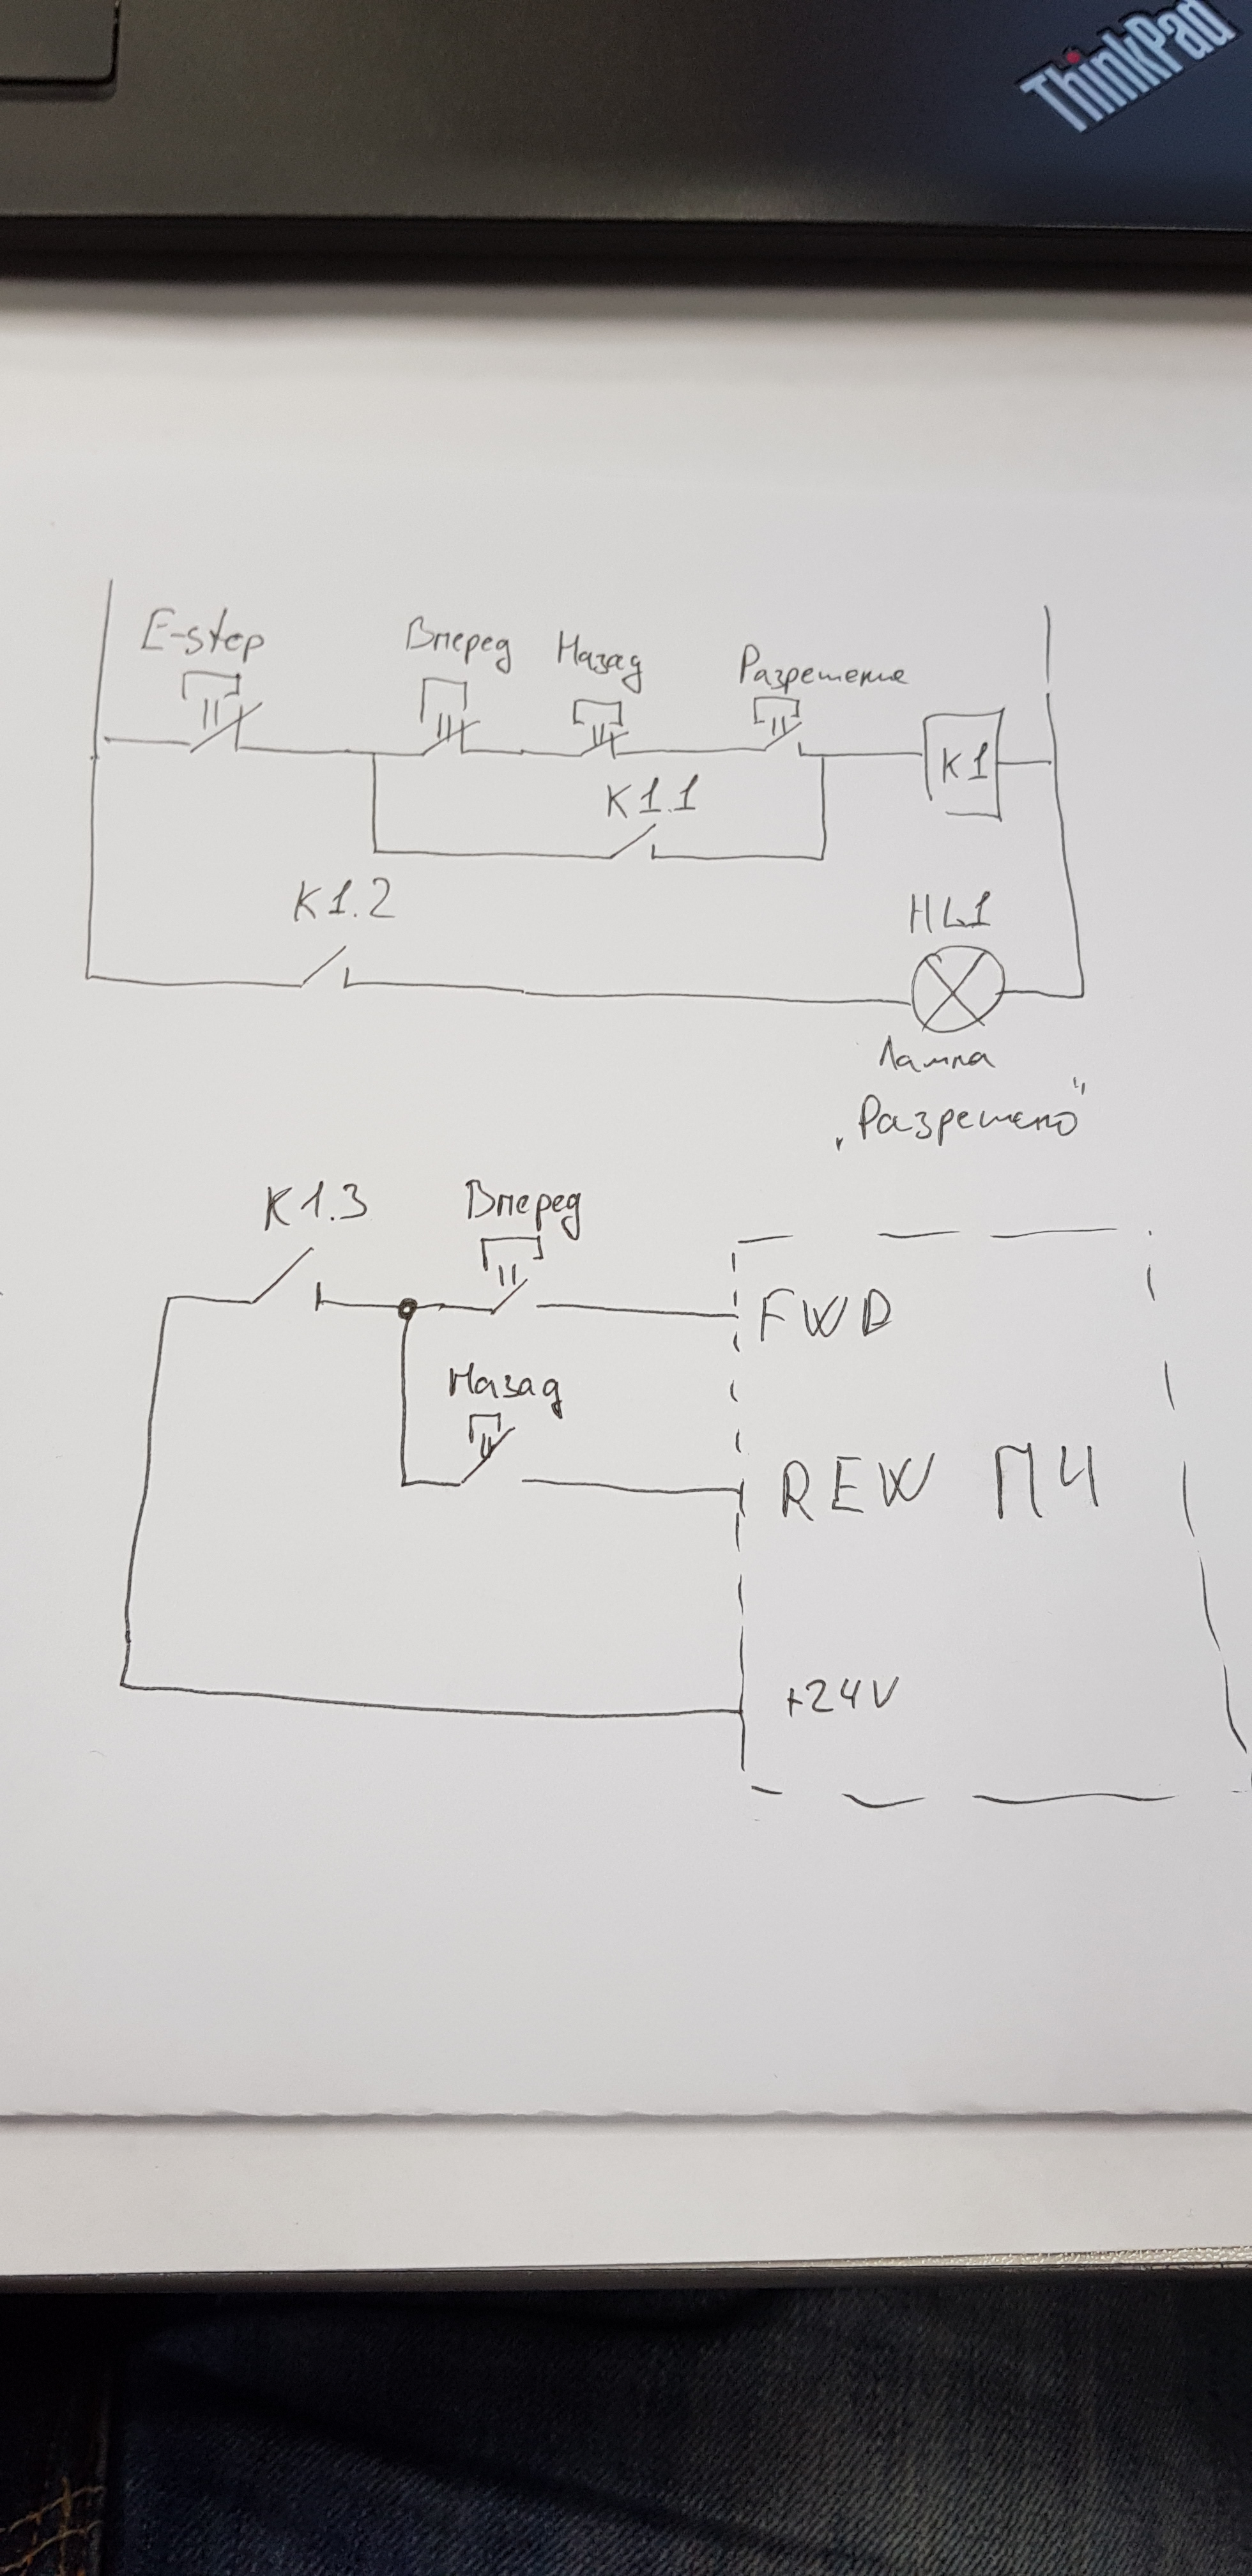 ThinkPad
E-stop
Вперед
Назад
Разрешение
K1
K1.1
K1.2
HL1
Лампа
„Разрешено"
K1.3
Вперед
FWD
Назад
REW ПЧ
+24V